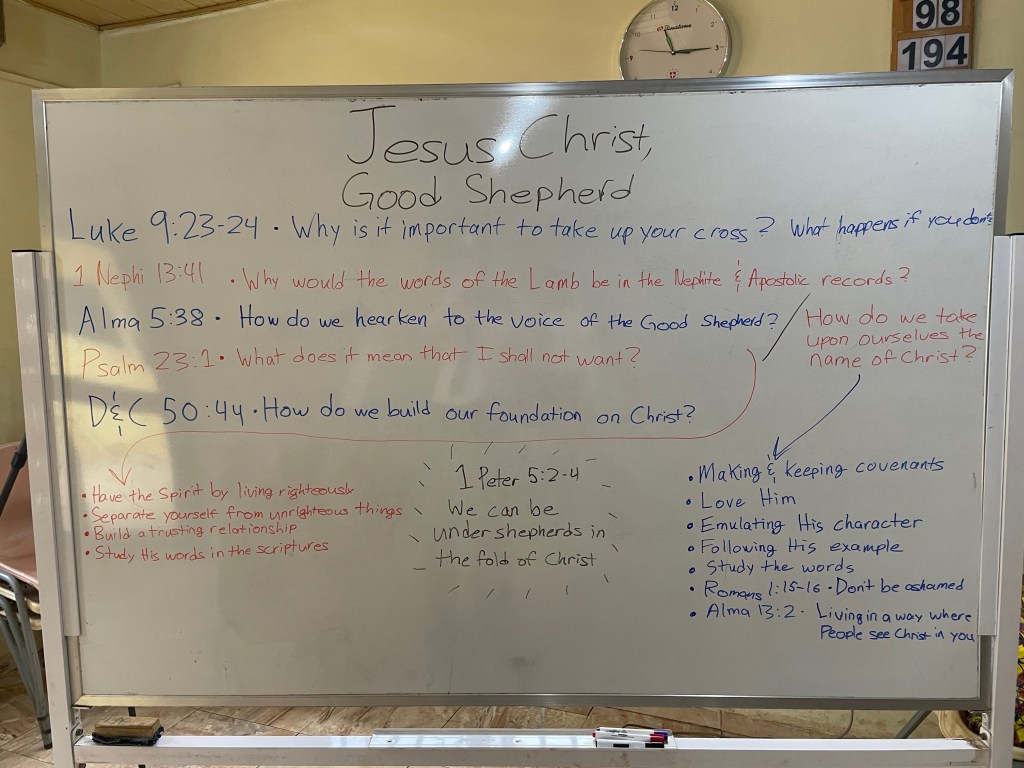 98
194
12
3
9
Jesus Christ,
Good Shepherd
Luke 9:23-24 · Why is it important to take up your cross? What happens if you don't?
1 Nephi 13:41 · Why would the words of the Lamb be in the Nephite & Apostolic records?
Alma 5:38 · How do we hearken to the voice of the Good Shepherd?
Psalm 23:1 · What does it mean that I shall not want?
D&C 50:44 · How do we build our foundation on Christ?
How do we take
upon ourselves the
name of Christ?
• Have the Spirit by living righteously
• Separate yourself from unrighteous things
• Build a trusting relationship
• Study His words in the scriptures
1 Peter 5:2-4
We can be
undershepherds in
the fold of Christ
• Making & keeping covenants
• Love Him
• Emulating His character
• Following His example
• Study the words
• Romans 1:15-16 · Don't be ashamed
• Alma 13:2 · Living in a way where
People see Christ in you